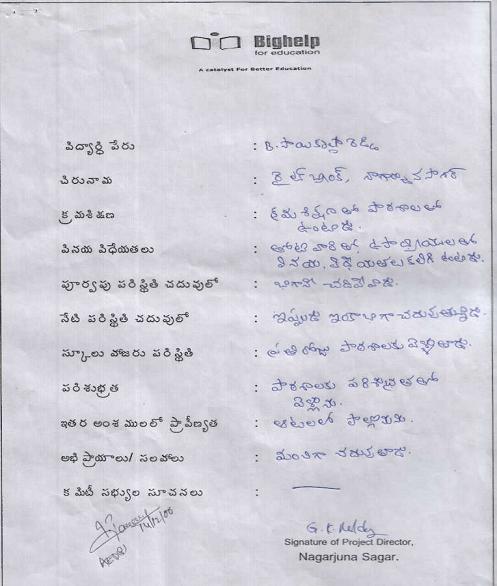 Bighelp
for education
A catalyst For Better Education
విద్యార్థి పేరు : B. సాయికృష్ణారెడ్డి
చిరునామ : పైలాన్, నాగార్జున సాగర్
క్రమశిక్షణ : క్రమశిక్షణతో పాఠశాలలో
ఉంటాడు.
వినయ విధేయతలు : తోటి వారితో, ఉపాధ్యాయులతో
వినయ, విధేయతలు కలిగి ఉంటాడు.
పూర్వపు పరిస్థితి చదువులో : బాగానే చదివేవాడు.
నేటి పరిస్థితి చదువులో : ఇప్పుడు ఇంకా బాగా చదువుతున్నాడు.
స్కూలు హాజరు పరిస్థితి : ప్రతి రోజు పాఠశాలకు వెళ్ళుతాడు.
పరిశుభ్రత : పాఠశాలకు పరిశుభ్రతతో
వెళ్లును.
ఇతర అంశములలో ప్రావీణ్యత : ఆటలలో పాల్గొనును.
అభిప్రాయాలు/ సలహాలు : మంచిగా చదువుతాడు.
కమిటీ సభ్యుల సూచనలు :
14/12/06
G.K. Reddy
Signature of Project Director,
Nagarjuna Sagar.